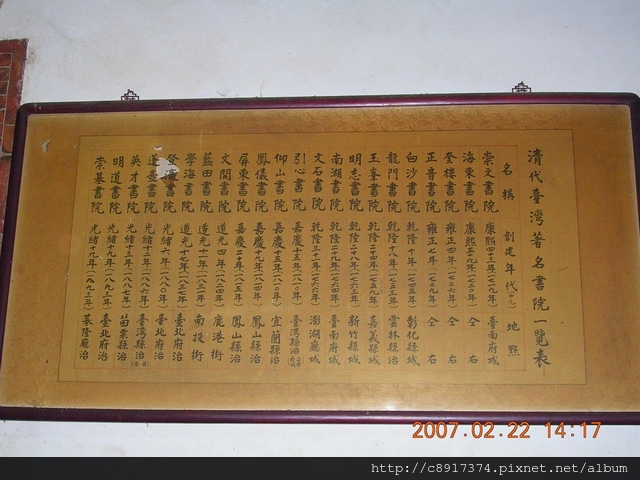 清代臺灣著名書院一覽表
名稱 創建年代 地點
崇文書院 康熙四十三年 臺南府城
海東書院 康熙五十九年(一七二〇年) 仝右
奎樓書院 雍正四年(一七二六年) 仝右
正音書院 雍正七年(一七二九年) 仝右
白沙書院 乾隆十年(一七四五年) 彰化縣城
龍門書院 乾隆十八年(一七五三年) 雲林縣治
玉峯書院 乾隆二十四年(一七五九年) 嘉義縣城
明志書院 乾隆二十八年(一七六三年) 新竹縣城
南湖書院 乾隆二十九年(一七六四年) 臺南府城
文石書院 乾隆三十一年(一七六六年) 澎湖廳城
引心書院 嘉慶十五年(一八一〇年) 臺灣縣治
仰山書院 嘉慶十五年(一八一〇年) 宜蘭縣治
鳳儀書院 嘉慶十九年(一八一四年) 鳳山縣治
屏東書院 嘉慶二十年(一八一五年) 鳳山縣治
文開書院 道光四年(一八二四年) 鹿港街
藍田書院 道光十一年(一八三一年) 南投街
學海書院 道光十七年(一八三七年) 臺北府治
登瀛書院 光緒六年(一八八〇年) 臺北府治
道臺書院 光緒十二年(一八八六年) 臺灣縣治
英才書院 光緒十三年(一八八七年) 苗栗縣治
明道書院 光緒十九年(一八九三年) 臺北府治
崇基書院 光緒十九年(一八九三年) 基隆廳治
2007.02.22 14:17
http://c8917374.pixnet.net/album